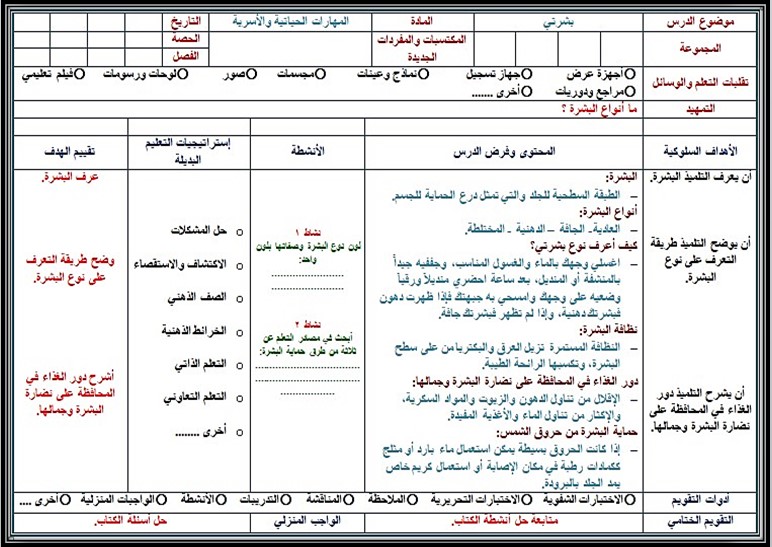 موضوع الدرس بشرتي المادة المهارات الحياتية والأسرية التاريخ
المجموعة المكتسبات والمفردات الجديدة الحصة
الفصل
تقلبات التعلم والوسائل
أجهزة عرض جهاز تسجيل نماذج وعينات مجسمات صور لوحات ورسومات فيلم تعليمي
مراجع ودوريات أخرى .......
التمهيد ما أنواع البشرة ؟
الأهداف السلوكية المحتوى وفرض الدرس الأنشطة إستراتيجيات التعليم البديلة تقييم الهدف
أن يعرف التلميذ البشرة.
أن يوضح التلميذ طريقة
التعرف على نوع
البشرة.
أن يشرح التلميذ دور
الغذاء في المحافظة على
نضارة البشرة وجمالها.
البشرة:
– الطبقة السطحية للجلد والتي تمثل درع الحماية للجسم.
أنواع البشرة:
– العادية- الجافة – الدهنية - المختلطة.
كيف أعرف نوع بشرتي؟
– اغسلي وجهك بالماء والغسول المناسب، وجففيه جيداً
بالمنشفة أو المنديل، بعد ساعة احضري منديلاً ورقياً
وضعيه على وجهك وامسحي به جبهتك فإذا ظهرت دهون
فبشرتك دهنية، وإذا لم تظهر فبشرتك جافة.
نظافة البشرة:
– النظافة المستمرة تزيل العرق والبكتريا من على سطح
البشرة، وتكسبها الرائحة الطيبة.
دور الغذاء في المحافظة على نضارة البشرة وجمالها:
– الإقلال من تناول الدهون والزيوت والمواد السكرية،
والإكثار من تناول الماء والأغذية المفيدة.
حماية البشرة من حروق الشمس:
– إذا كانت الحروق بسيطة يمكن استعمال ماء بارد أو مثلج
ككمادات رطبة في مكان الإصابة أو استعمال كريم خاص
يمد الجلد بالبرودة.
نشاط ١
لون نوع البشرة وصفاتها بلون
واحد:
........................
........................
نشاط ٢
أبحث في مصادر التعلم عن
ثلاثة من طرق حماية البشرة:
........................
........................
........................
حل المشكلات
الاكتشاف والاستقصاء
الصف الذهني
الخرائط الذهنية
التعلم الذاتي
التعلم التعاوني
أخرى ........
عرف البشرة.
وضح طريقة التعرف
على نوع البشرة.
أشرح دور الغذاء في
المحافظة على نضارة
البشرة وجمالها.
أدوات التقويم الاختبارات الشفوية الاختبارات التحريرية الملاحظة المناقشة التدريبات الأنشطة الواجبات المنزلية أخرى ....
التقويم الختامي متابعة حل أنشطة الكتاب. الواجب المنزلي حل أسئلة الكتاب.